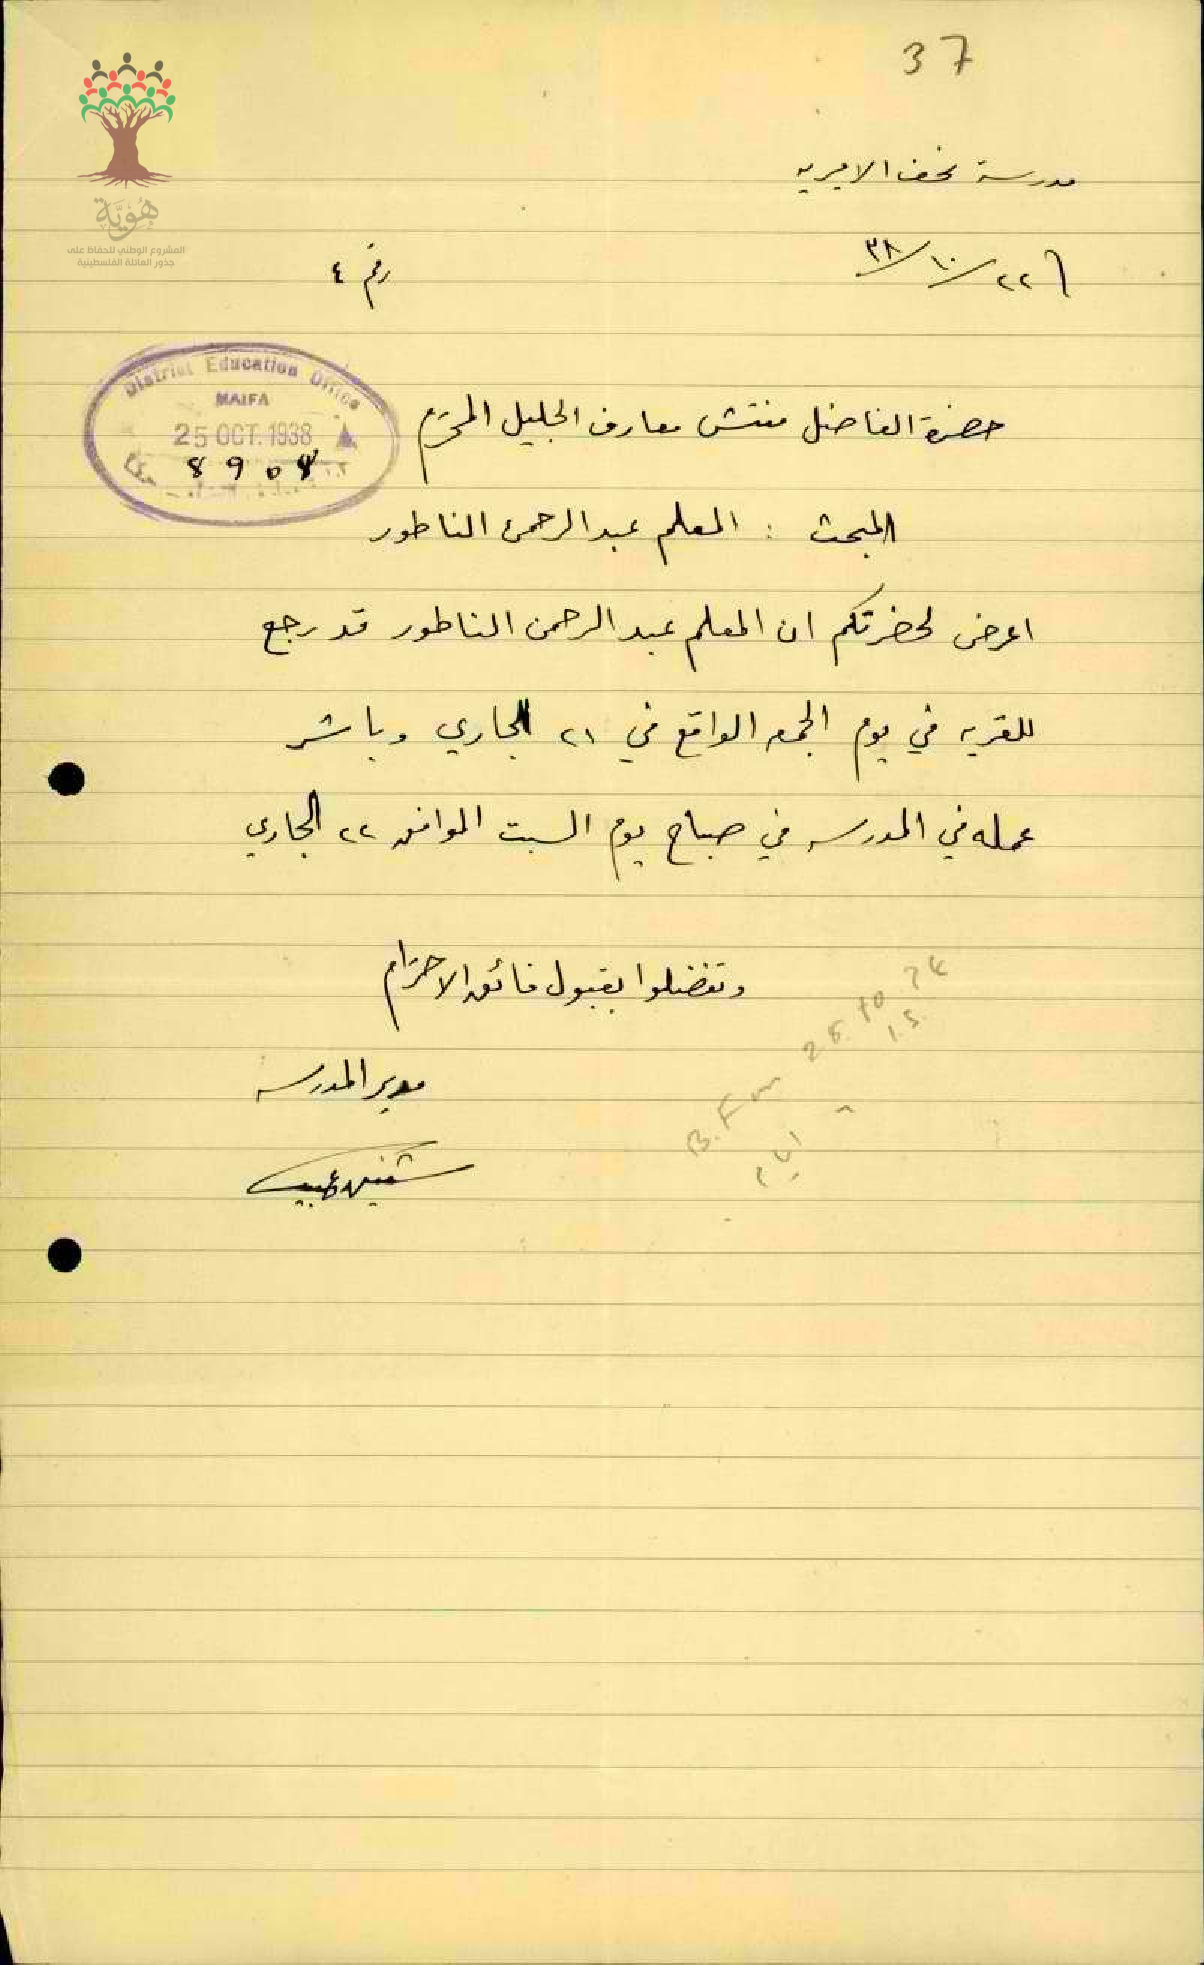 37
هُوِيَّة
المشروع الوطني للحفاظ على
جذور العائلة الفلسطينية
مدرسة نحف الاميريه
٢٢/١٠/٣٨
رقم ٤
District Education Office
HAIFA
25 OCT. 1938
حضرة الفاضل مفتش معارف الجليل المحترم
المبحث : المعلم عبد الرحمن الناطور
اعرض لحضرتكم ان المعلم عبد الرحمن الناطور قد رجع
للقريه في يوم الجمعه الواقع في ٢١ الجاري وباشر
عمله في المدرسه في صباح يوم السبت الموافق ٢٢ الجاري
وتفضلوا بقبول فائق الاحترام
مدير المدرسه